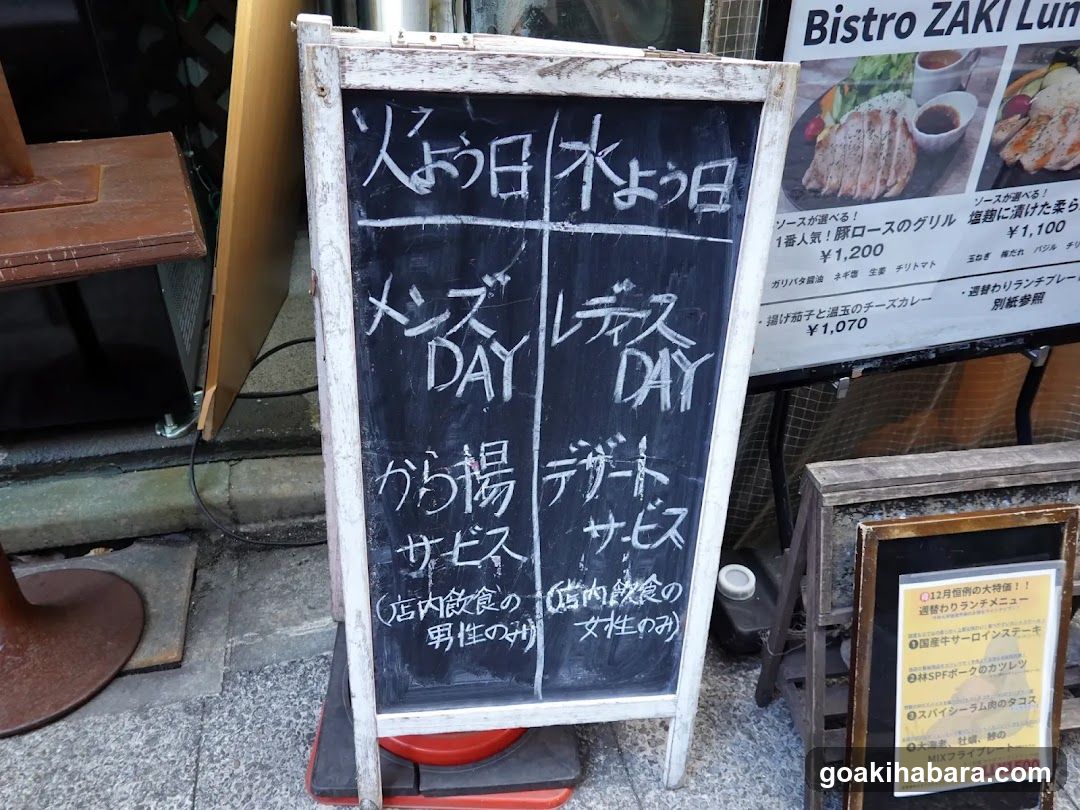 火よう日
メンズ
DAY
から揚
サービス
(店内飲食の
男性のみ)
水よう日
レディス
DAY
デザート
サービス
(店内飲食の
女性のみ)
Bistro ZAKI Lun
ソースが選べる！
1番人気！豚ロースのグリル
￥1,200
ガリバタ醤油 ネギ塩 生姜 チリトマト
・揚げ茄子と温玉のチーズカレー
￥1,070
ソースが選べる！
塩麹に漬けた柔ら
￥1,100
玉ねぎ 梅だれ バジル チリ
・週替わりランチプレー
別紙参照
12月恒例の大特価！！
週替わりランチメニュー
❶国産牛サーロインステーキ
❷林SPFポークのカツレツ
❸スパイシーラム肉のタコス
❹大海老、牡蠣、鯵の
MIXフライプレート
goakihabara.com